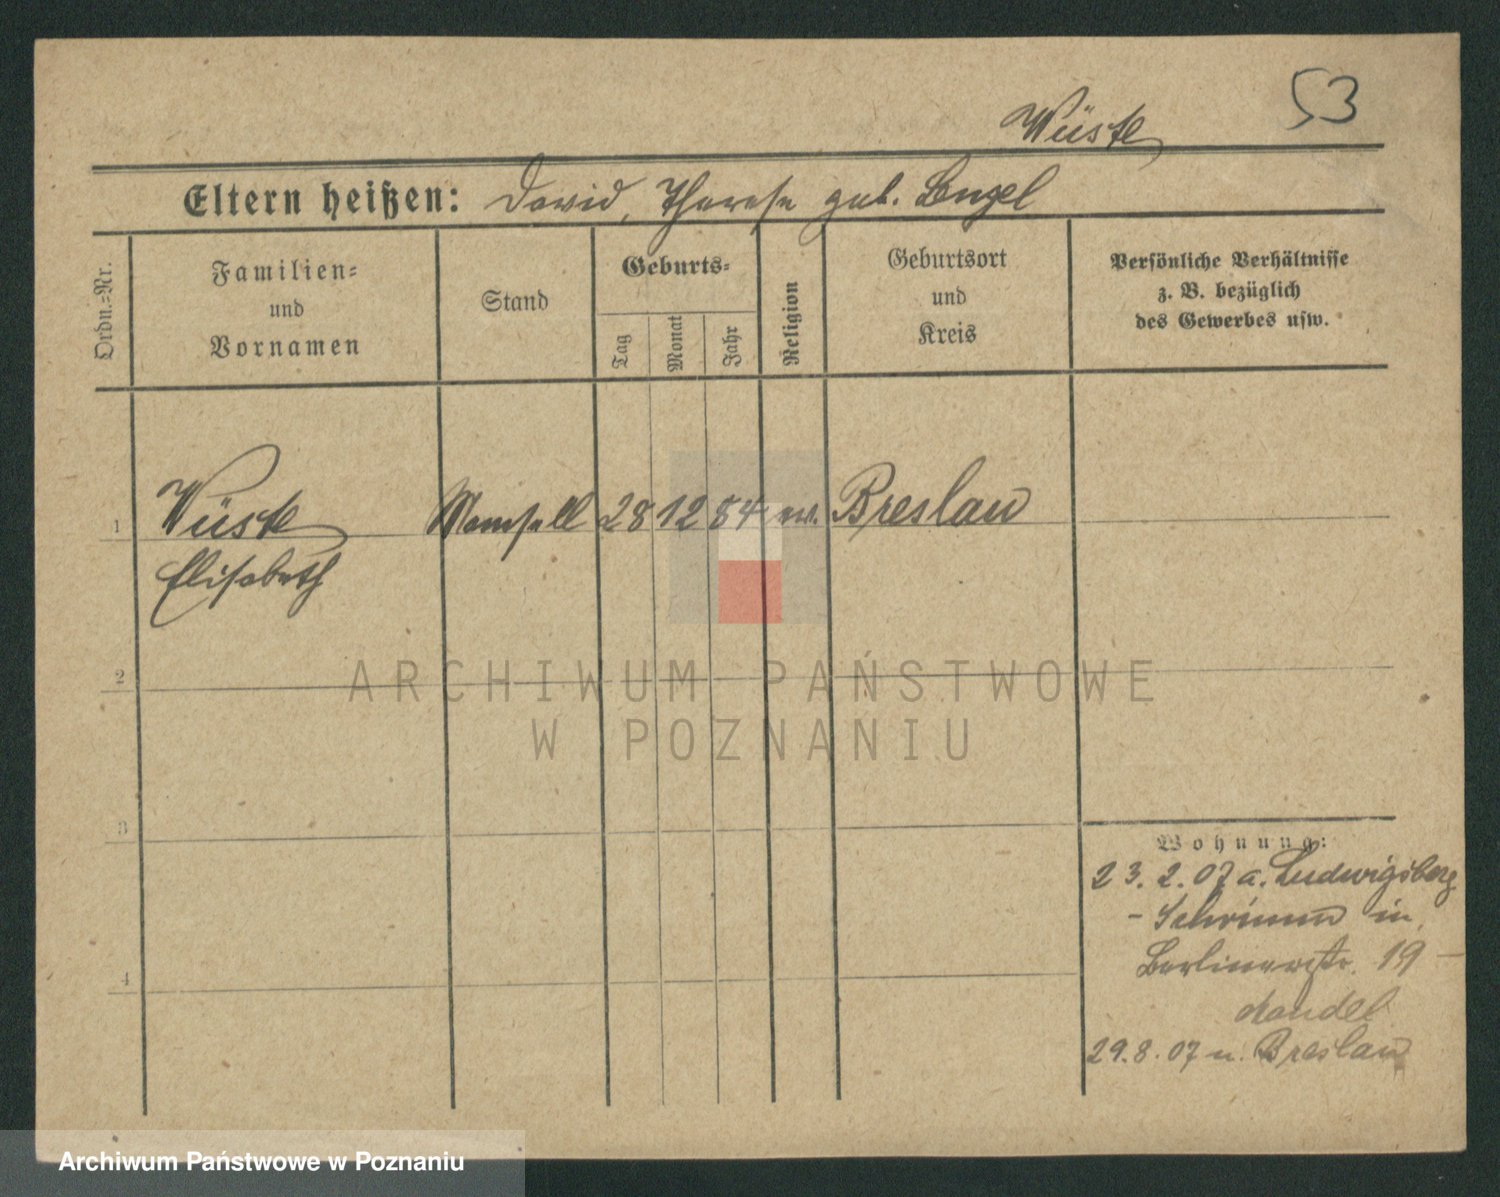 53
Wüste
Eltern heißen: David, Therese geb. Bengel
Ordn.=Nr.
Familien=
und
Vornamen
Stand
Geburts=
Tag
Monat
Jahr
Religion
Geburtsort
und
Kreis
Persönliche Verhältnisse
z. B. bezüglich
des Gewerbes usw.
1 Wüste Mamsell 28 12 84 ev. Breslau
Elisabeth
2
3
4
Wohnung:
23. 2. 07 a. Ludwigsberg
- Schrimm in
Berlinerstr. 19 -
Mandel
29. 8. 07 n. Breslau
ARCHIWUM PAŃSTWOWE
W POZNANIU
Archiwum Państwowe w Poznaniu